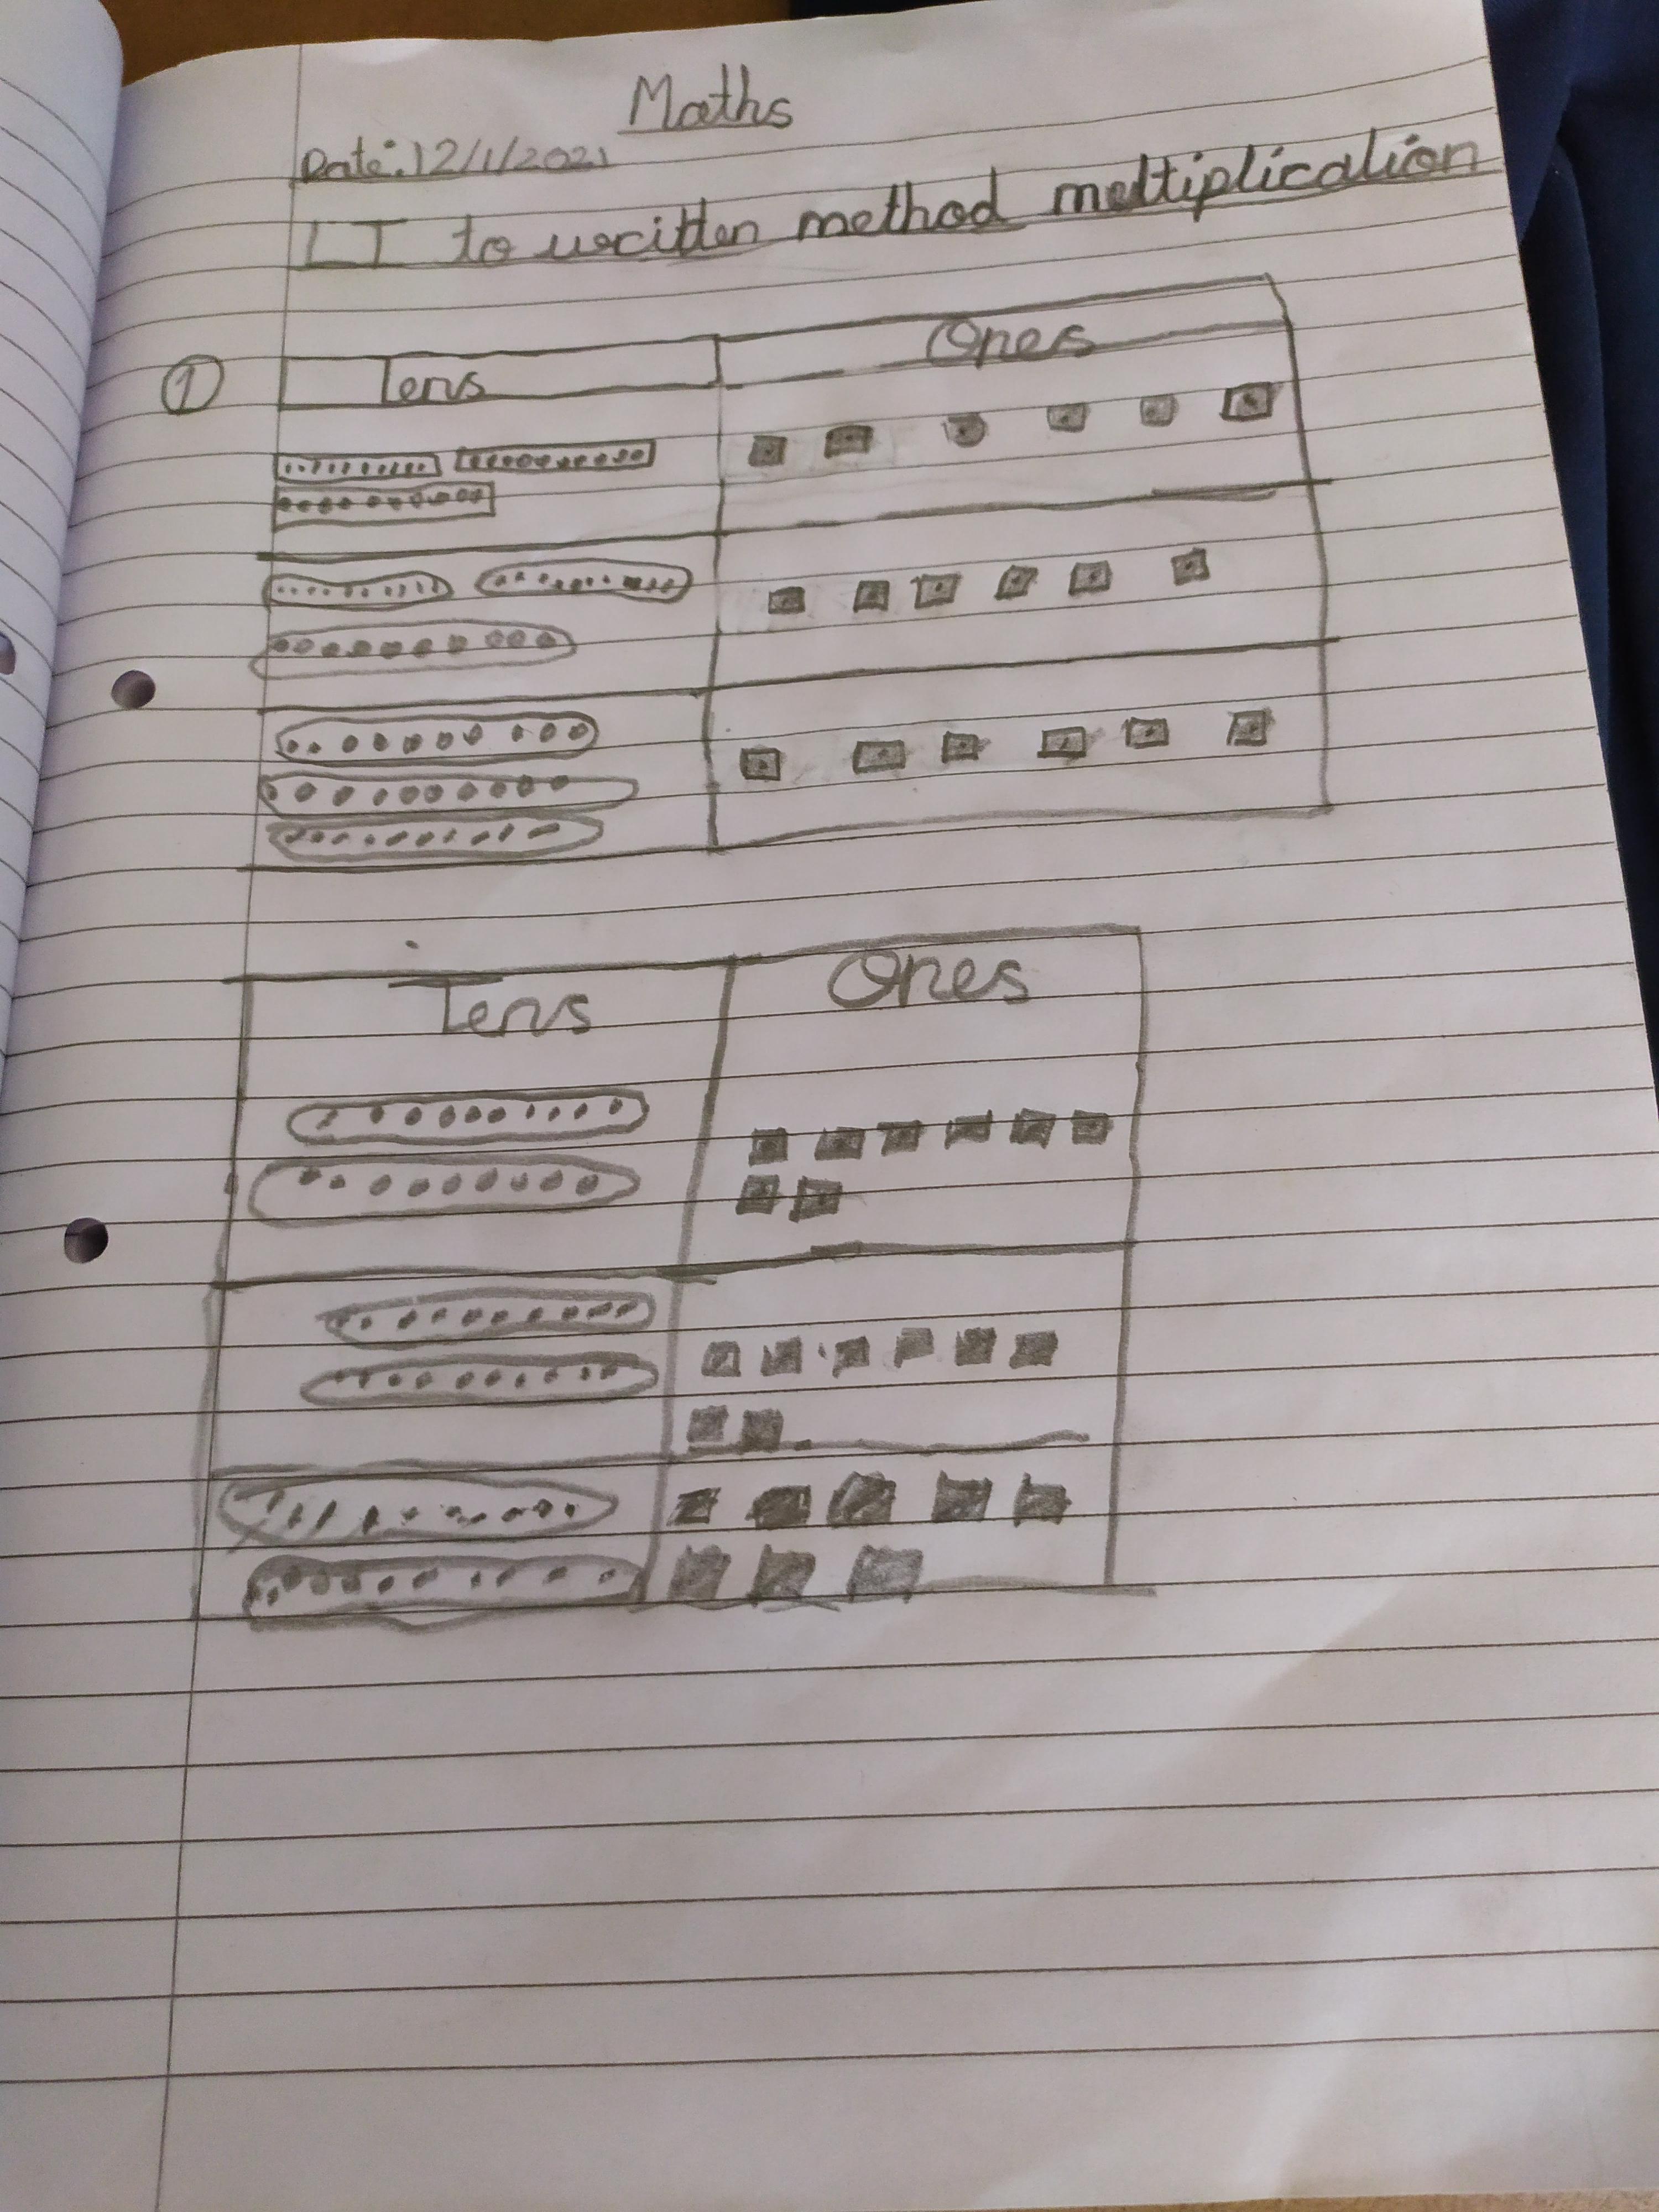 Maths
Date: 12/1/2021
LI to written method multiplication
1
Tens Ones
Tens Ones